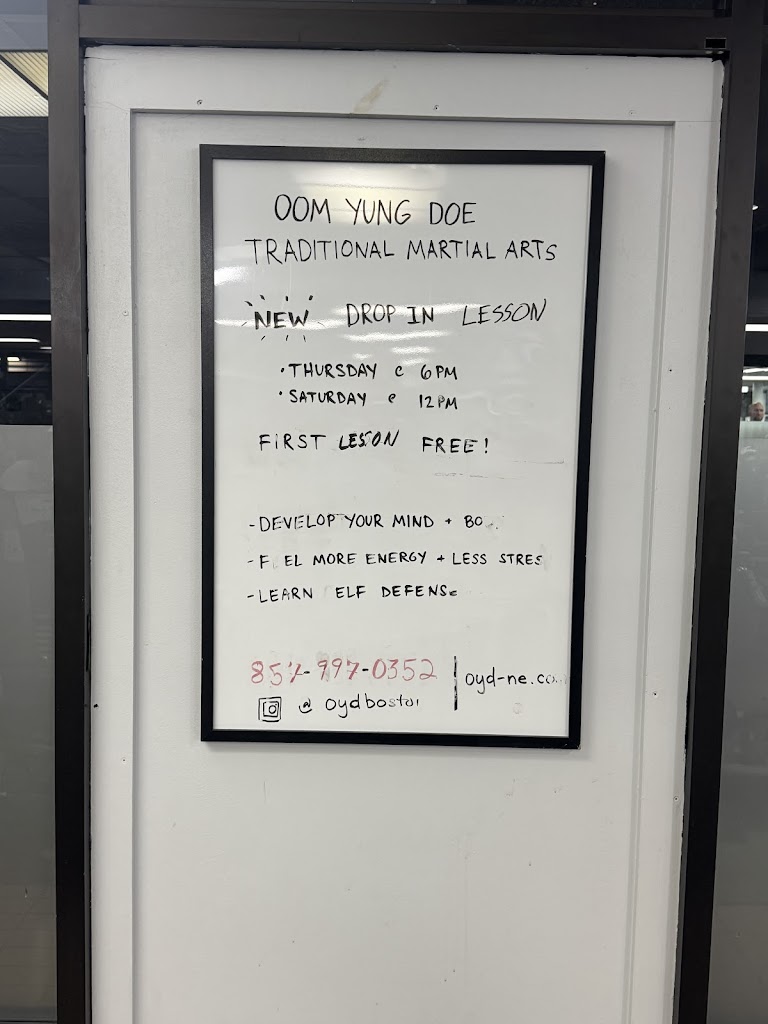 OOM YUNG DOE
TRADITIONAL MARTIAL ARTS
NEW DROP IN LESSON
· THURSDAY @ 6PM
· SATURDAY @ 12PM
FIRST LESSON FREE!
- DEVELOP YOUR MIND + BO
- F EL MORE ENERGY + LESS STRES
- LEARN ELF DEFENSE
857-997-0352 | oyd-ne.co
@ oydbosto